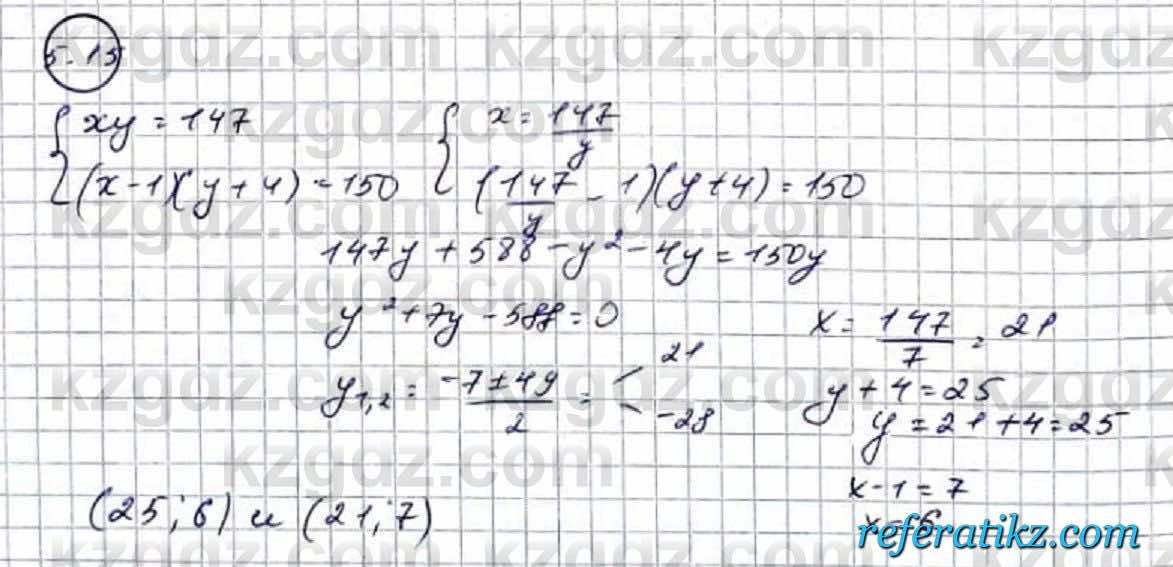 5.15
{ xy = 147
(x-1)(y+4) = 150
{ x = 147/y
(147/y - 1)(y+4) = 150
147y + 588 - y² - 4y = 150y
y² + 7y - 588 = 0
y₁,₂ = (-7 ± 49)/2 = < 21
-28
x = 147/7 = 21
y + 4 = 25
y = 21 + 4 = 25
x - 1 = 7
x = 6
(25; 6) и (21; 7)
kzgdz.com
referatikz.com